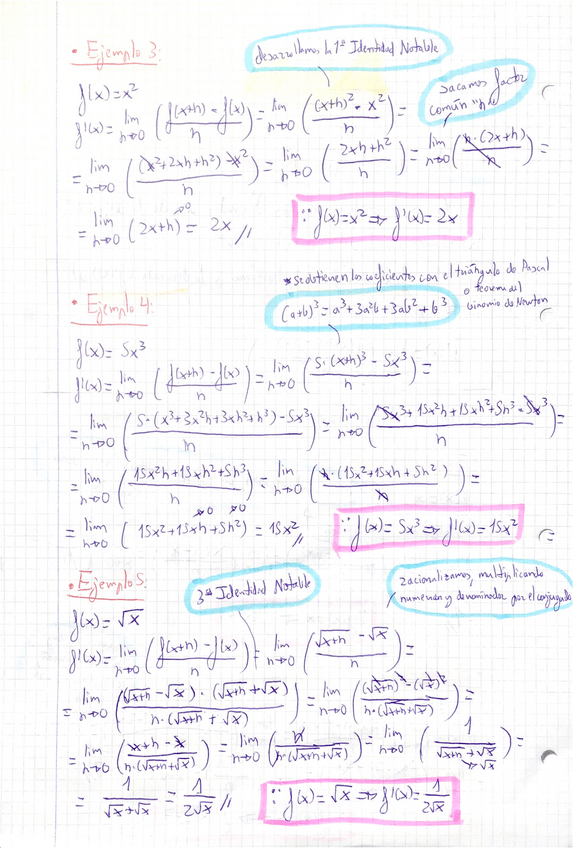 • Ejemplo 3:
desarrollamos la 1ª Identidad Notable
f(x)=x²
sacamos factor
común "h"
f'(x)= lim h→0 ( (f(x+h) - f(x)) / h ) = lim h→0 ( ((x+h)² - x²) / h ) =
= lim h→0 ( ((x²+2xh+h²) - x²) / h ) = lim h→0 ( (2xh+h²) / h ) = lim h→0 ( h·(2x+h) / h ) =
= lim h→0 (2x+h) = 2x //
∵ f(x)=x² ⇒ f'(x)= 2x
* se obtienen los coeficientes con el triángulo de Pascal
o teorema del
binomio de Newton
• Ejemplo 4:
(a+b)³ = a³+3a²b+3ab²+b³
f(x)= 5x³
f'(x)= lim h→0 ( (f(x+h) - f(x)) / h ) = lim h→0 ( (5·(x+h)³ - 5x³) / h ) =
= lim h→0 ( (5·(x³+3x²h+3xh²+h³) - 5x³) / h ) = lim h→0 ( (5x³+15x²h+15xh²+5h³-5x³) / h ) =
= lim h→0 ( (15x²h+15xh²+5h³) / h ) = lim h→0 ( h·(15x²+15xh+5h²) / h ) =
→0 →0
= lim h→0 ( 15x²+15xh+5h²) = 15x² //
∵ f(x)= 5x³ ⇒ f'(x)= 15x²
• Ejemplo 5:
3ª Identidad Notable
racionalizamos, multiplicando
numerador y denominador por el conjugado
f(x)= √x
f'(x)= lim h→0 ( (f(x+h) - f(x)) / h ) = lim h→0 ( (√(x+h) - √x) / h ) =
= lim h→0 ( (√(x+h) - √x)·(√(x+h) + √x) / (h·(√(x+h) + √x)) ) = lim h→0 ( ((√(x+h))² - (√x)²) / (h·(√(x+h)+√x)) ) =
= lim h→0 ( (x+h - x) / (h·(√(x+h)+√x)) ) = lim h→0 ( h / (h·(√(x+h)+√x)) ) = lim h→0 ( 1 / (√(x+h) + √x) ) =
→√x
= 1 / (√x+√x) = 1 / (2√x) //
∵ f(x)= √x ⇒ f'(x)= 1 / (2√x)